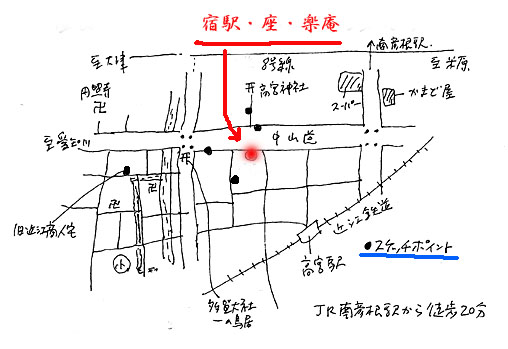 宿駅・座・楽庵
↑南彦根駅.
至大津
8号線
至米原.
円照寺
卍
开高宮神社
スーパー
かまど屋
至愛知川
中山道
开
卍
卍
旧近江商人宅
近江鉄道
●スケッチポイント
小
高宮駅
多賀大社
一の鳥居
JR南彦根駅から徒歩20分